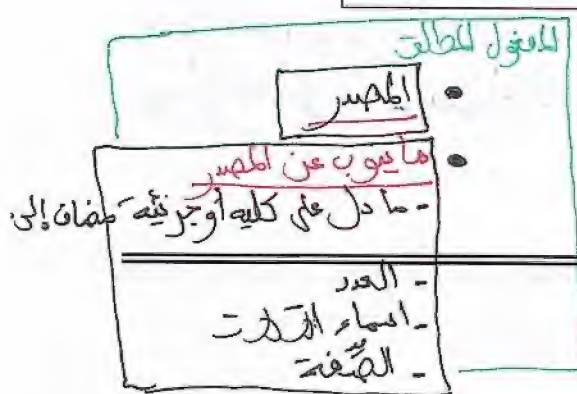 المفعول المطلق
• المصدر
• ما ينوب عن المصدر
- ما دل على كلية أو جزئية مضاف إلى
- العدد
- اسماء
- الصِّفة